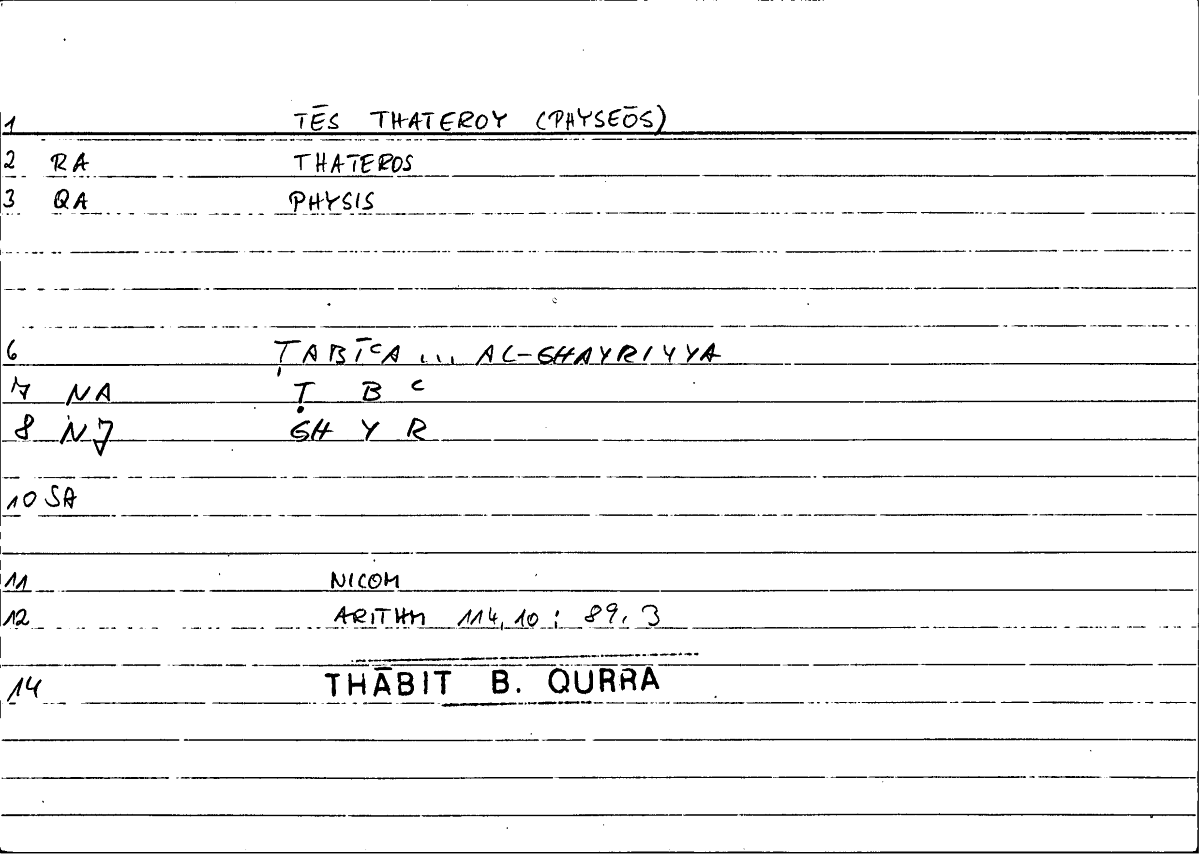 1 TĒS THATEROY (PHYSEŌS)
2 RA THATEROS
3 QA PHYSIS
6 ṬABĪᶜA ... AL-GHAYRIYYA
7 NA Ṭ B ᶜ
8 NJ GH Y R
10 SA
11 NICOM
12 ARITHM 114,10 : 89,3
14 THĀBIT B. QURRA